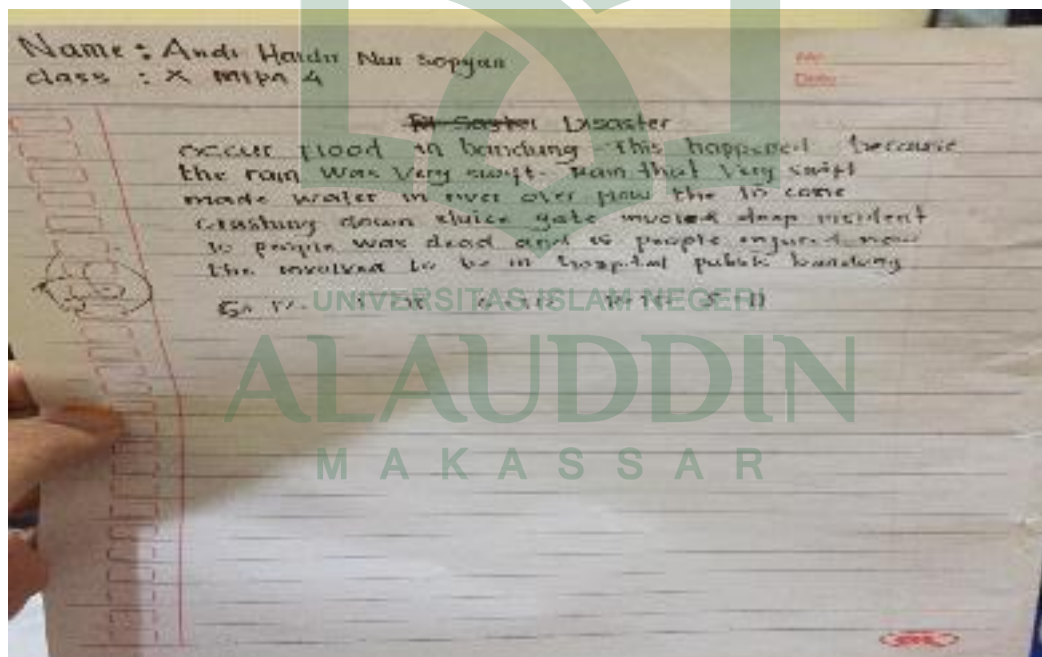 Name : Andi Haidir Nur Sopyan
class : X MIPA 4
No
Date
Disaster
occur flood in bandung This happened because
the rain was Very swift. Rain that Very swift
made water in river over flow the to come
crashing down sluice gate involed deep incident
10 people was dead and 15 people injured now
the involved to be in hospital public bandung
UNIVERSITAS ISLAM NEGERI
ALAUDDIN
MAKASSAR